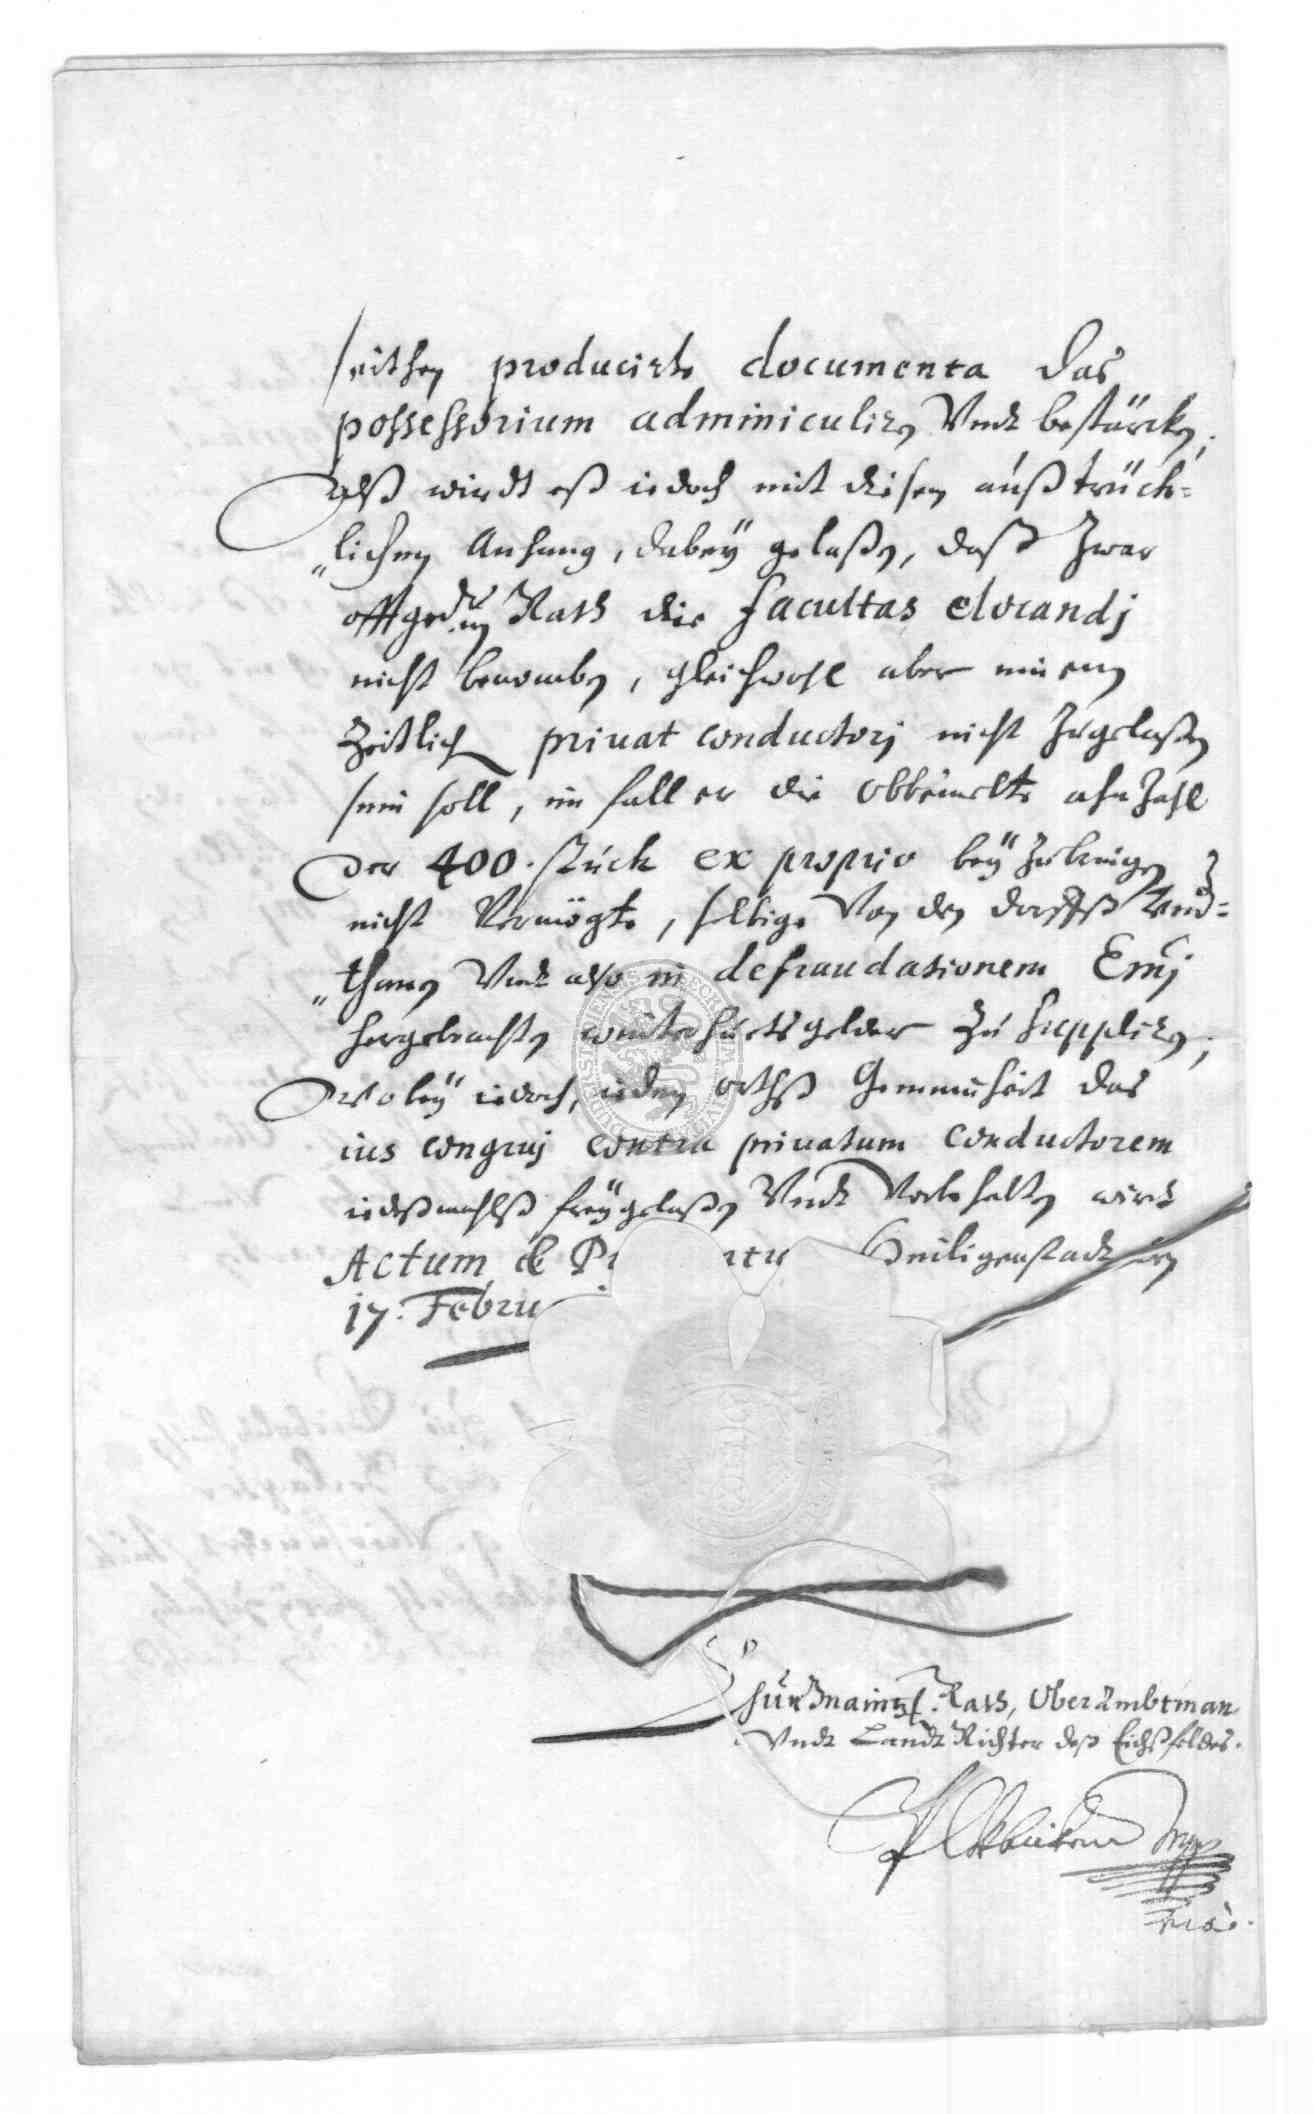 seithen producirte documenta das
possessorium adminiculiren Vndt bestärcken,
Alß wirdt eß iedoch mit diesem außtrück-
lichen Anhang, dabey gelaßen, daß Zwar
offtgedn Rath die facultas elocandj
nicht benomben, gleichwohl aber einem
Zeitlich priuat conductorj nicht Zugelaßen
sein soll, im fall er die obbemelte ahnZahl
der 400. stück ex proprio beyZubringen
nicht Vermögte, selbige Von den dorffß Vnd-
thanen Vndt also in defraudationem Emj
hergebrachten weidtgelder Zu suppliren,
Wobey iedoch, ieden orthß Gemeinheit das
ius congruj contra priuatum conductorem
iedeßmahlß freygelaßen Vndt Vorbehalten wirdt
Actum & Heiligenstadt den
17. Febru
ChurMaintzl. Rath, OberAmbtman
Vndt LandtRichter deß Eichßfeldes.